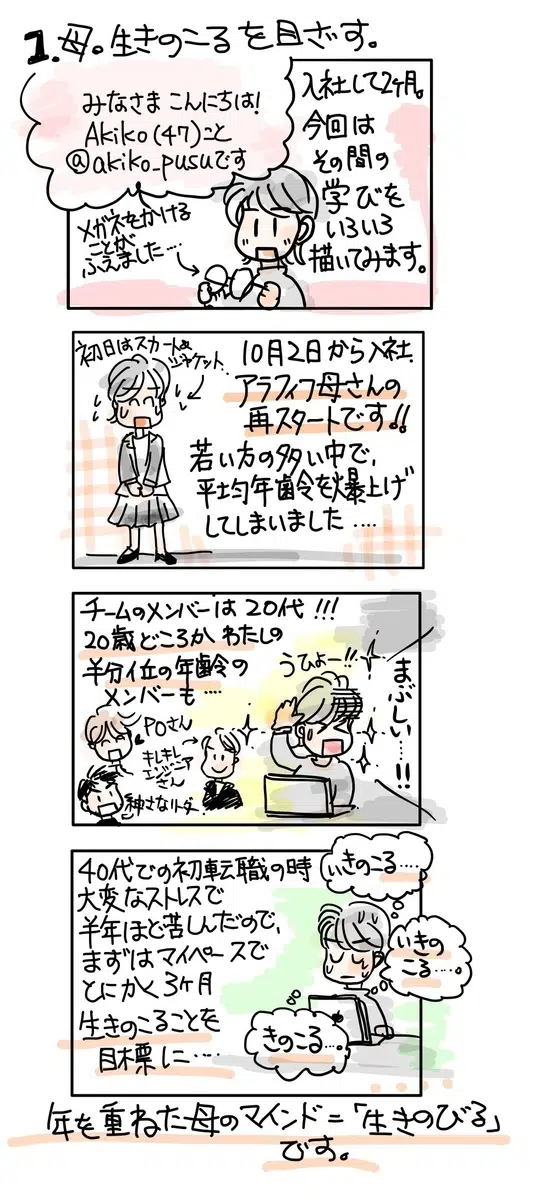 1.母。生きのこるを目ざす。
みなさま こんにちは!
Akiko(47)こと
@akiko_pusuです
入社して2ヶ月。
今回は
その間の
学びを
いろいろ
描いてみます。
メガネをかける
ことが
ふえました....
初日はスカート&
ジャケット.
10月2日から入社.
アラフィフ母さんの
再スタートです!!
若い方の多い中で、
平均年齢を爆上げ
してしまいました....
チームのメンバーは20代!!!
20歳どころか わたしの
半分位の年齢の
メンバーも....
うひょー!!
まぶしい...!!
POさん
キレキレ
エンジニア
さん
神さなリーダー
40代での初転職の時
大変なストレスで
半年ほど苦しんだので、
まずはマイペースで
とにかく3ヶ月
生きのこることを
目標に....
いきのこる....
いきの
こる...。
きのこる...。
年を重ねた母のマインド=「生きのびる」
です。